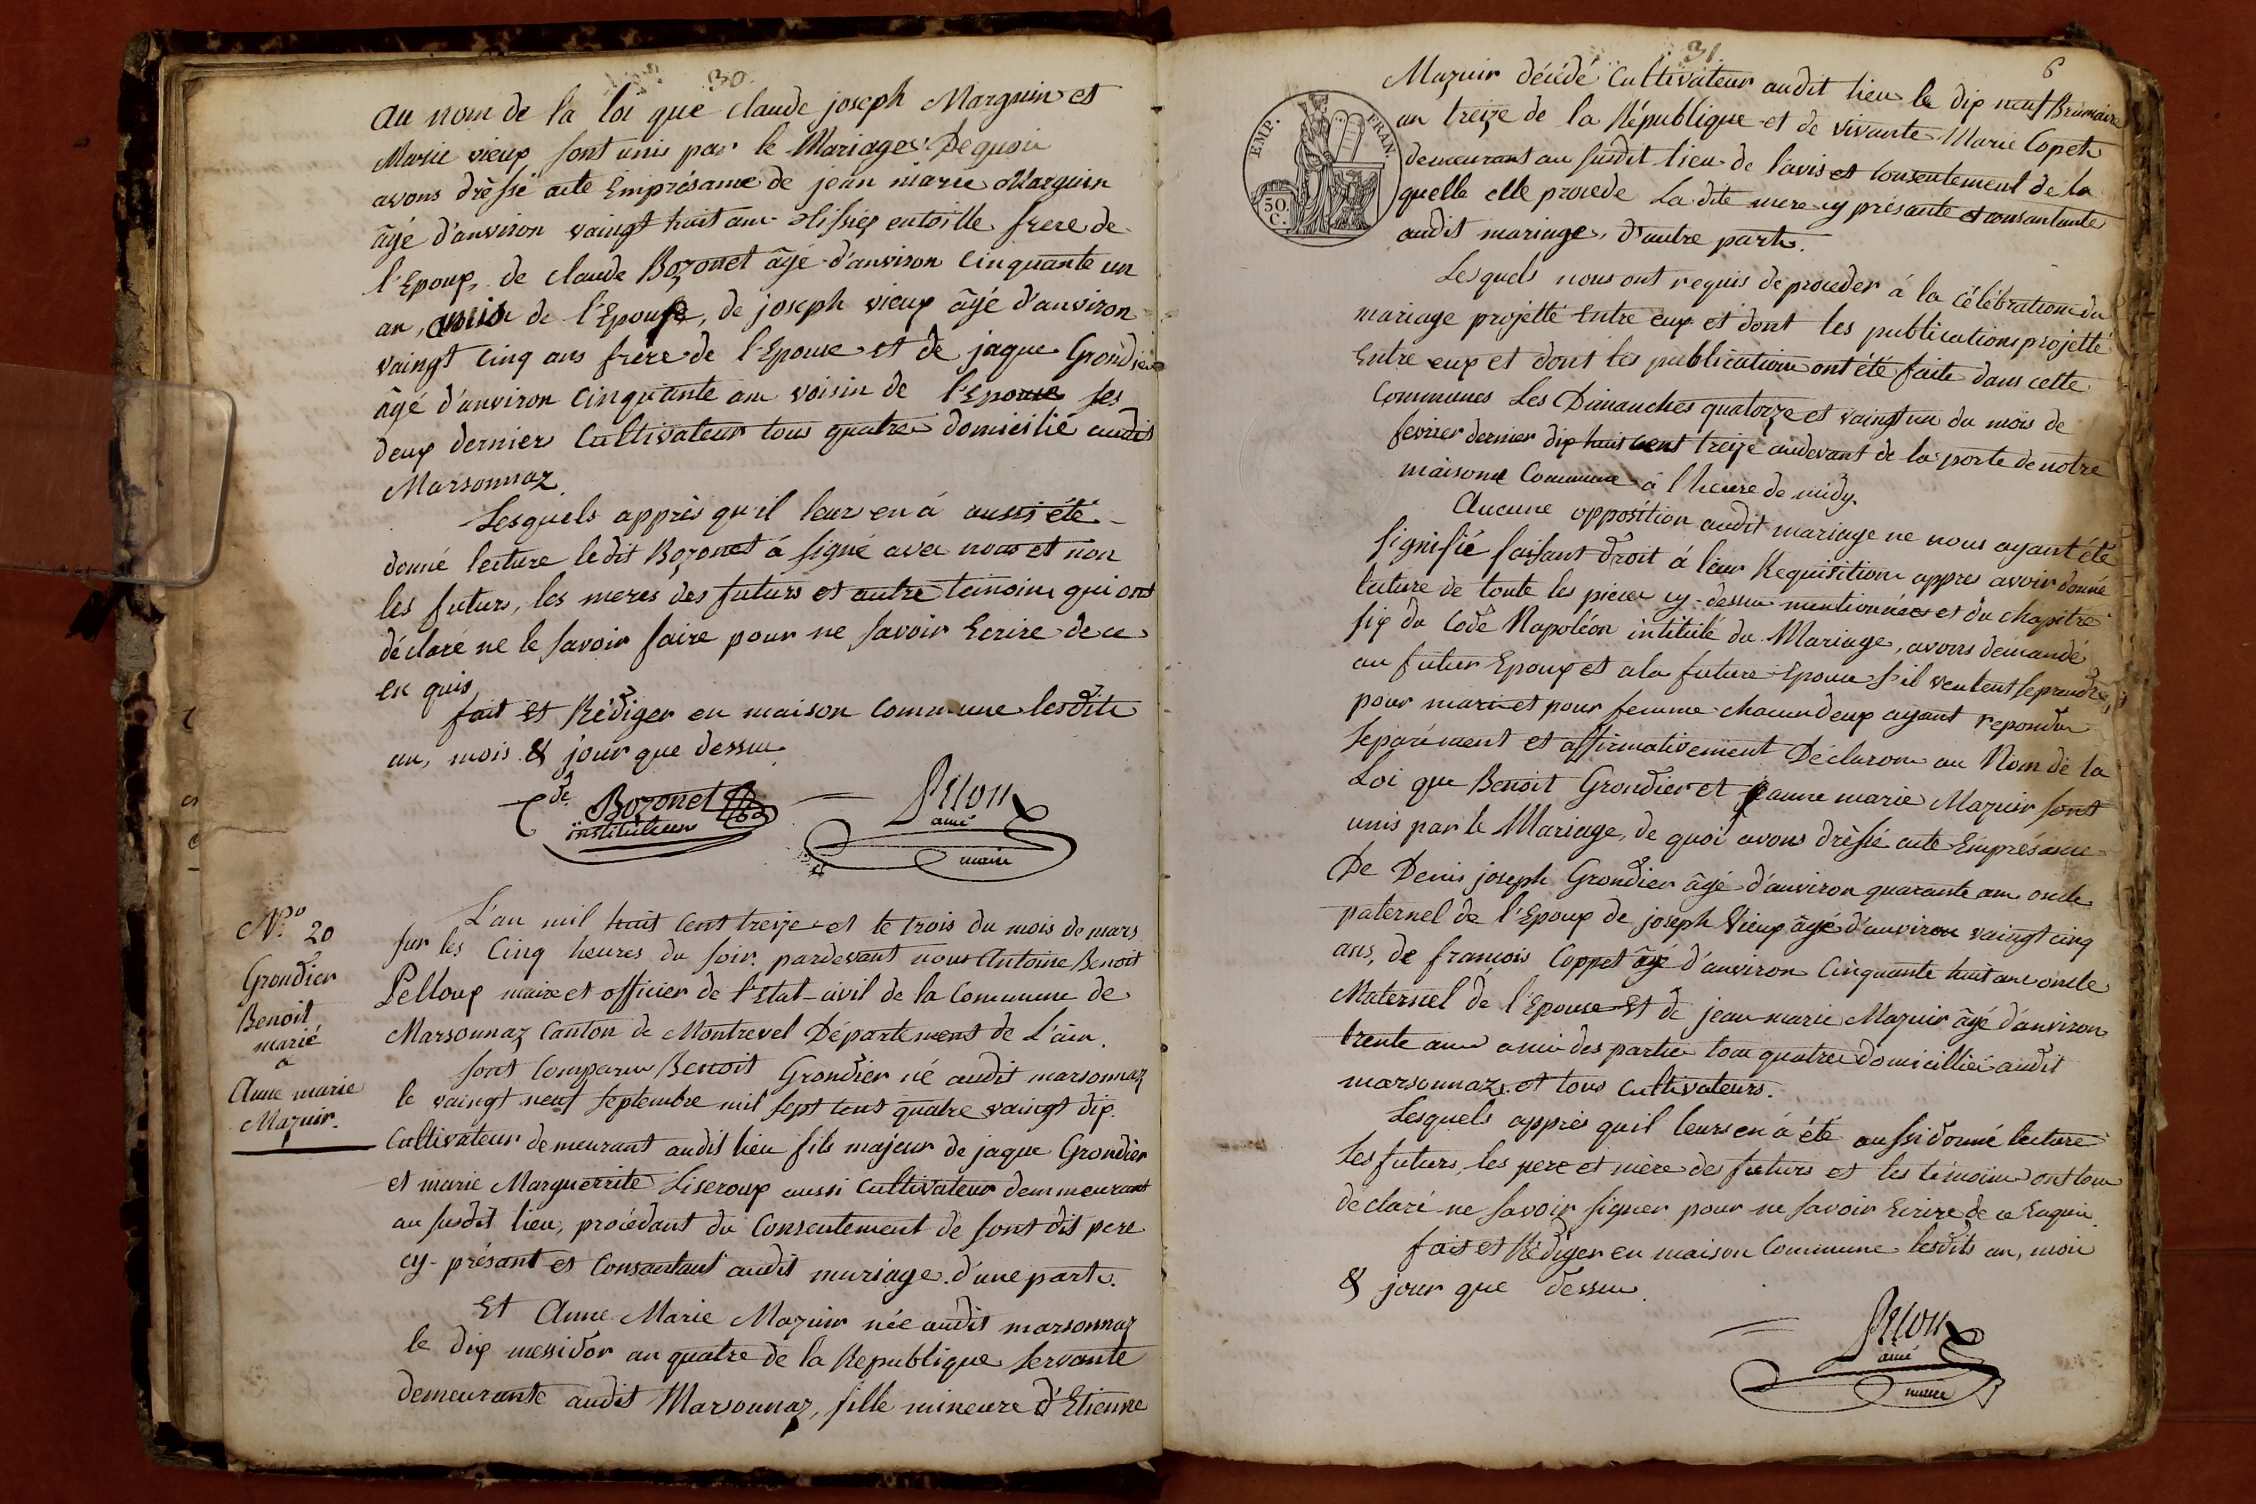 30.
au nom de la loi que claude joseph Marguin et
Marie vieux sont unis par le Mariage. De quoi
avons drèssé acte Emprésance de jean marie Marguin
âgé d'anviron vaingt huit ans tissier entoille frere de
l'Epoux, de claude Bozonet âgé d'anviron cinquante un
an, amis de l'Epouse, de joseph vieux âgé d'anviron
vaingt cinq ans frere de l'Epouse et de jaque Grondier
âgé d'anviron cinquante ans voisin de l'Epouse ses
deux dernier Cultivateur tous quatre domicilié audit
Marsonnaz.
Lesquels apprès qu'il leur en á aussi été
donné lecture ledit Bozonet á signé avec nous et non
les futurs, les meres des futurs et autre temoins qui ont
déclaré ne le savoir faire pour ne savoir Ecrire de ce
en quis
fait et Rédiger en maison Commune lesdits
an, mois & jour que dessus.
Cde Bozonet
instituteur
Pelloux
ainé
maire
No 20
Grondier
Benoit
marié
a
Anne marie
Mazuir.
L'an mil huit Cent treize et le trois du mois de mars
sur les Cinq heures du soir. pardevant nous Antoine Benoit
Pelloux maire et officier de l'Etat-civil de la Commune de
Marsonnaz Canton de Montrevel Département de L'ain.
sont Comparus Benoit Grondier né audit marsonnaz
le vaingt neuf septembre mil sept cent quatre vaingt dix.
Cultivateur demeurant audit lieu fils majeur de jaque Grondier
et marie Marguerrite Liseroux aussi Cultivateur demmeurant
au susdit lieu, procédant du Consentement de sont dit pere
cy-présant et Consantant audit mariage. d'une part.
Et Anne Marie Mazuir née audit marsonnaz
le dix messidor an quatre de la Republique servante
demeurante audit Marsonnaz, fille mineure d'Etienne
31
6
EMP. FRAN.
50
C.
Mazuir décédé Cultivateur audit lieu le dix neuf Brumaire
an treize de la République et de vivante Marie Copet
demeurant au susdit lieu de l'avis et consentement de la
quelle elle procede La dite mere cy présante et consantante
audit mariage, d'autre part.
Lesquels nous ont requis de proceder á la célébration du
mariage projetté Entre eux et dont les publications projetté
Entre eux et dont les publication ont été faite dans cette
Communes Les Dimanches quatorze et vaingt un du mois de
fevrier dernier dix huit cent treize audevant de la porte de notre
maisone Commune á l'heure de midy.
Aucune opposition audit mariage ne nous ayant été
signifié faisant droit á leur Requisition appres avoir donné
lecture de toute les pieces cy-dessus mentionnées et du chapitre
six du Code Napoléon intitulé du Mariage, avons demandé
au futur Epoux et a la future Epouse s'il veulent se prendre,
pour mari et pour femme chacun d'eux ayant repondu
separément et affirmativement Déclarons au Nom de la
Loi que Benoit Grondier et anne marie Mazuir sont
unis par le Mariage, de quoi avons drèssé acte Emprésance
De Denis joseph Grondier âgé d'anviron quarante ans oncle
paternel de l'Epoux de joseph Vieux âgé d'anviron vaingt cinq
ans, de francois Coppet âgé d'anviron Cinquante huit ans oncle
Maternel de l'Epouse Et de jean marie Mazuir âgé d'anviron
trente ans amis des partie tous quatre domicillié audit
marsonnaz et tous Cultivateurs.
Lesquels apprès qu'il leurs en á été aussi donné lecture
Les futurs, les pere et mère des futurs et les témoins ont tous
declaré ne savoir signer pour ne savoir Ecrire de ce Enquis.
fait et Rédiger en maison Commune lesdits an, mois
& jour que dessus.
Pelloux
ainé
maire